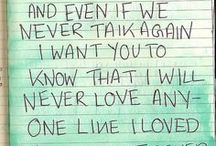 AND EVEN IF WE
NEVER TALK AGAIN
I WANT YOU TO
KNOW THAT I WILL
NEVER LOVE ANY-
ONE LIKE I LOVED